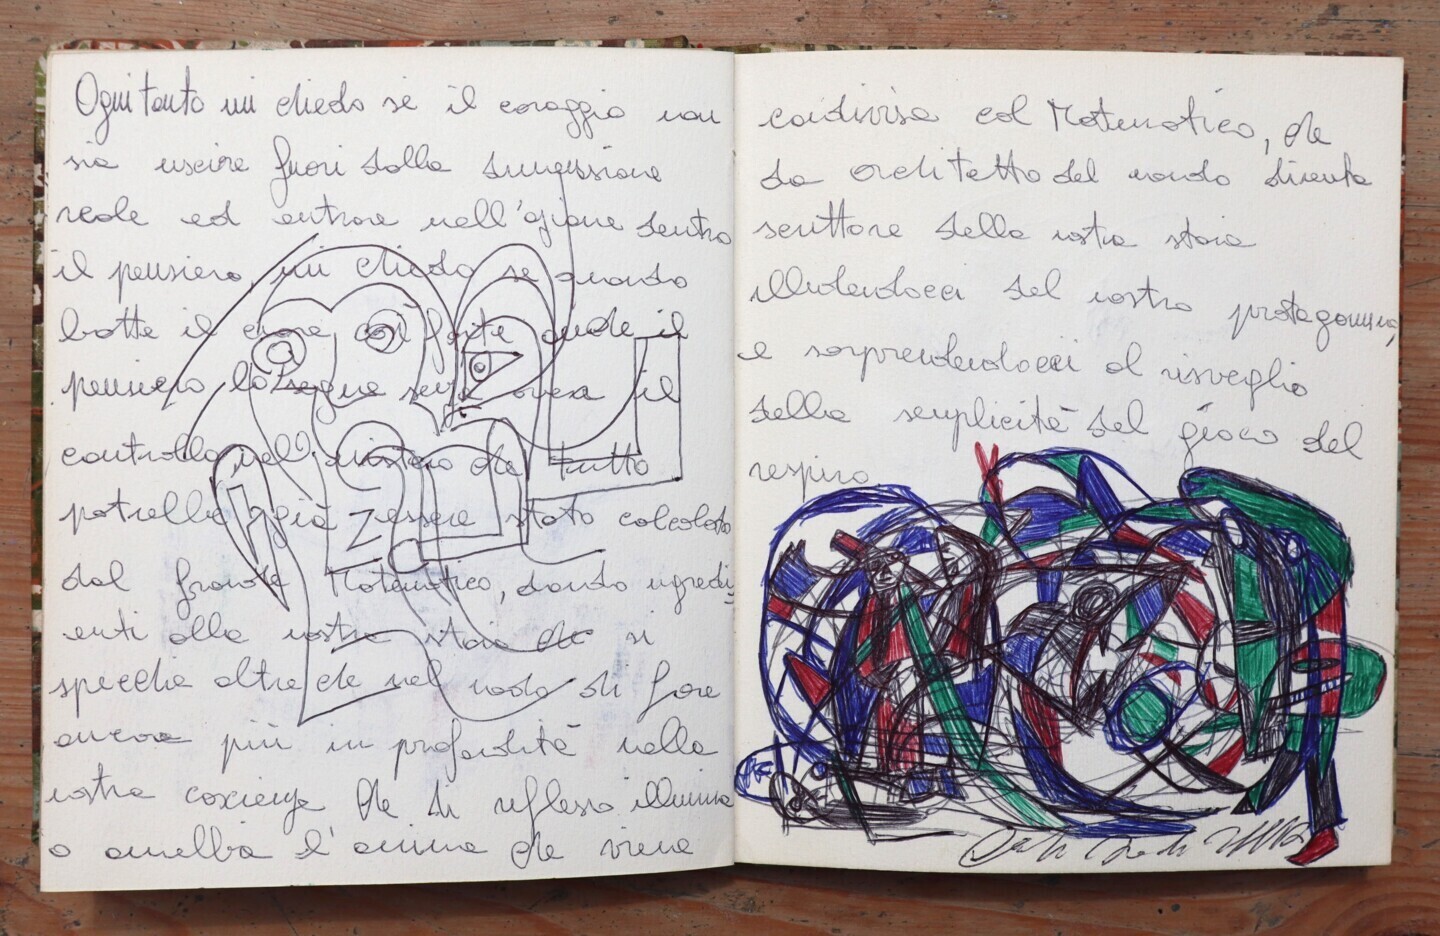 Ogni tanto mi chiedo se il coraggio non
sia uscire fuori dalla successione
reale ed entrare nell'azione dentro
il pensiero, mi chiedo se quando
batte il cuore così forte anche il
pensiero lo segue senza il
controllo nel mistero che tutto
potrebbe già essere stato calcolato
dal grande Matematico, dando ingredi
enti alla nostra storia che si
specchia oltre che nel modo di fare
ancora più in profondità nella
nostra coscienza che di riflesso illumina
o annebbia l'anima che viene
condivisa col Matematico, che
da architetto del mondo diventa
scrittore della nostra storia
illudendocci del nostro protagonismo,
e sorprendendocci al risveglio
della semplicità del gioco del
respiro